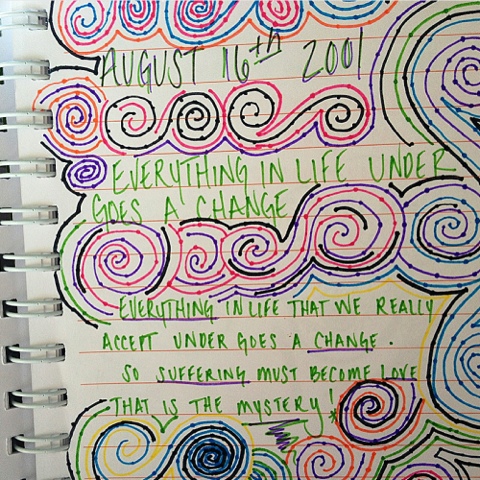 AUGUST 16th 2001
EVERYTHING IN LIFE UNDER
GOES A CHANGE
EVERYTHING IN LIFE THAT WE REALLY
ACCEPT UNDER GOES A CHANGE.
SO SUFFERING MUST BECOME LOVE
THAT IS THE MYSTERY!